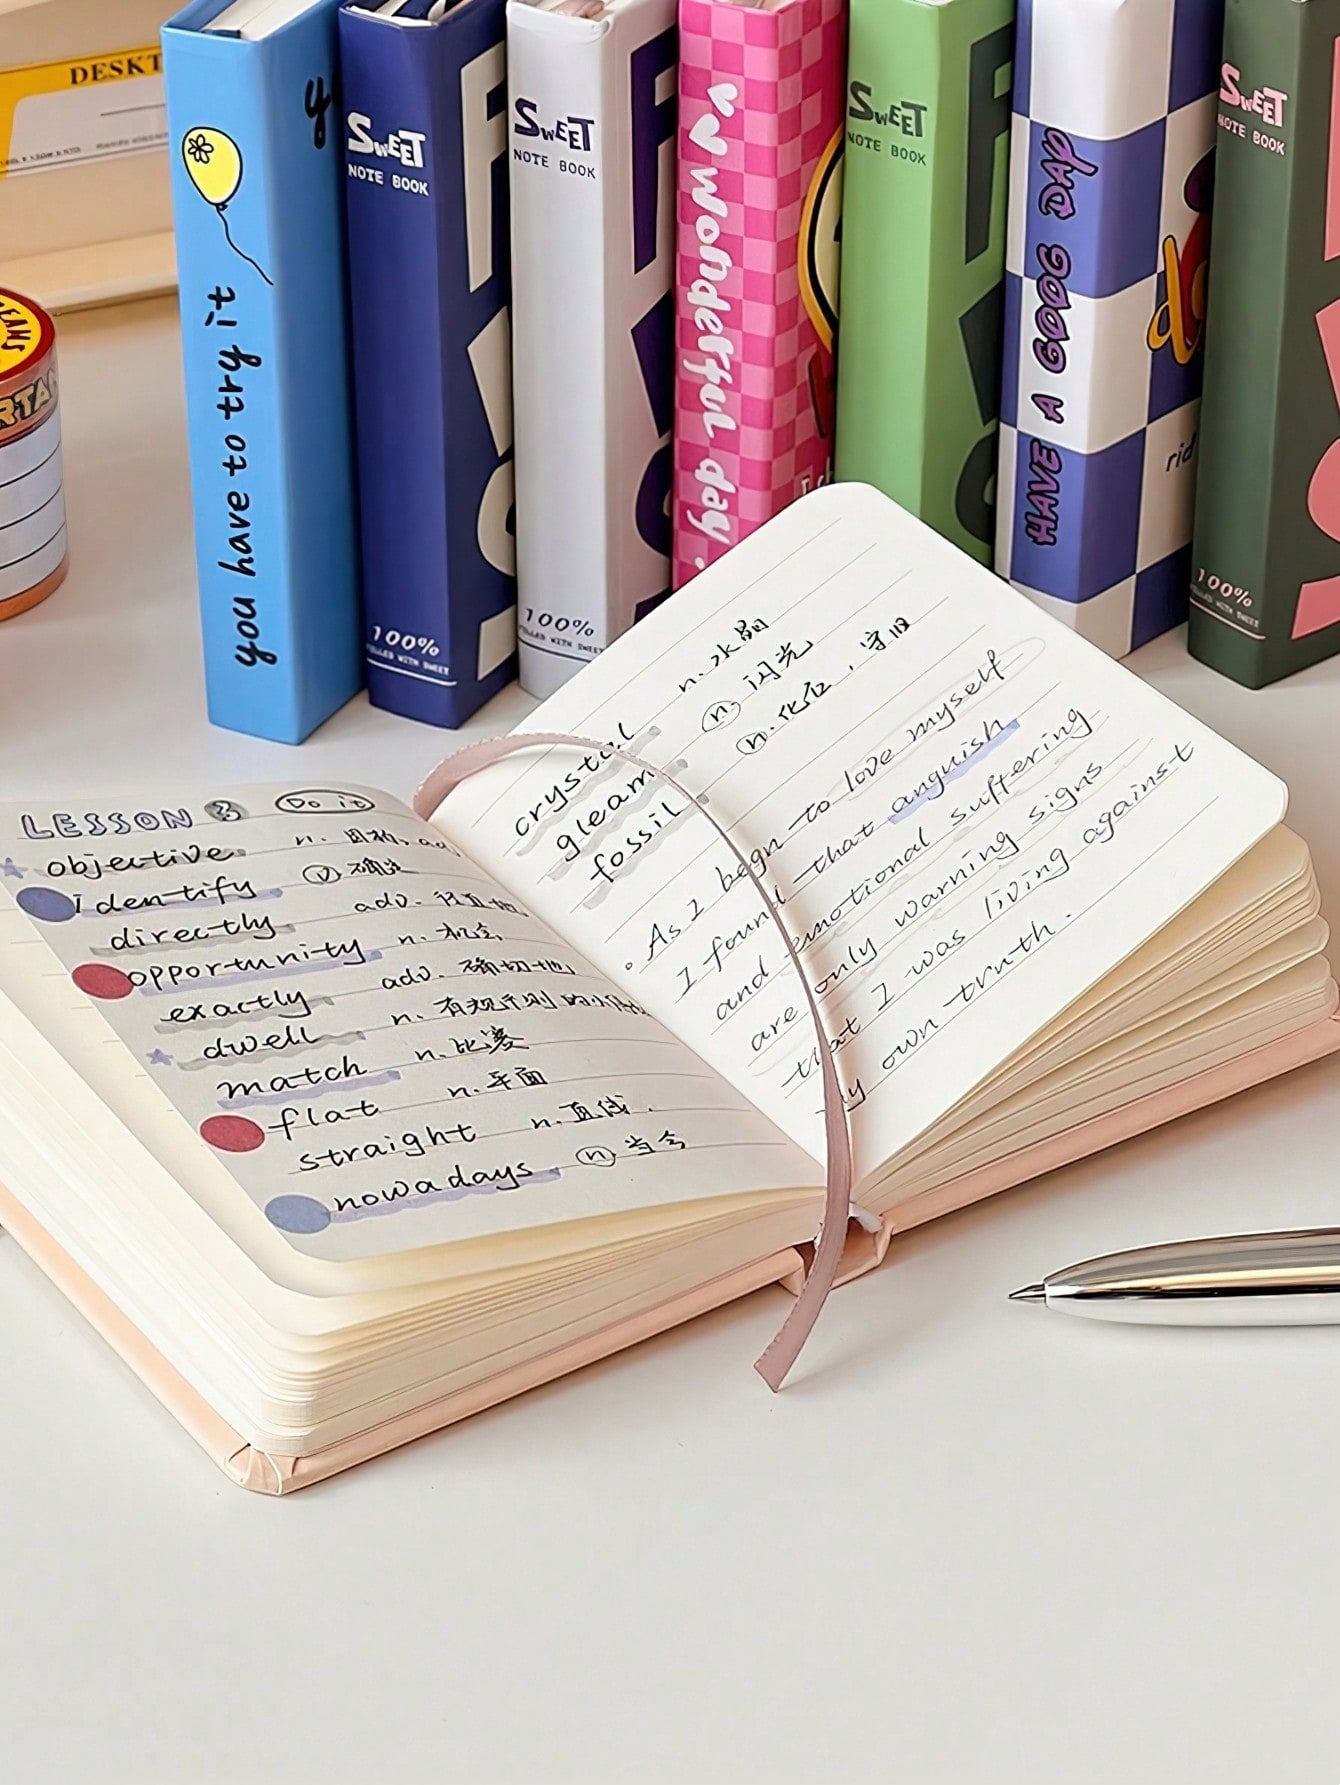 DESKT
you have to try it
SWEET
NOTE BOOK
100%
FILLED WITH SWEET
SWEET
NOTE BOOK
100%
FILLED WITH SWEET
wonderful day.
SWEET
NOTE BOOK
HAVE A GOOD DAY
rid
SWEET
NOTE BOOK
100%
LESSON 3 Do it
objective n. 目标, ad
identify v 确定
directly adv.
opportunity n. 机会
exactly adv. 确切地
dwell n. 有规则的
match n. 比赛
flat n. 平面
straight n. 直线.
nowadays n 当今
crystal n. 水晶
gleam n. 闪光
fossil n. 化石, 守旧
As I begn to love myself
I found that anguish
and emotional suffering
are only warning signs
that I was living against
my own truth.